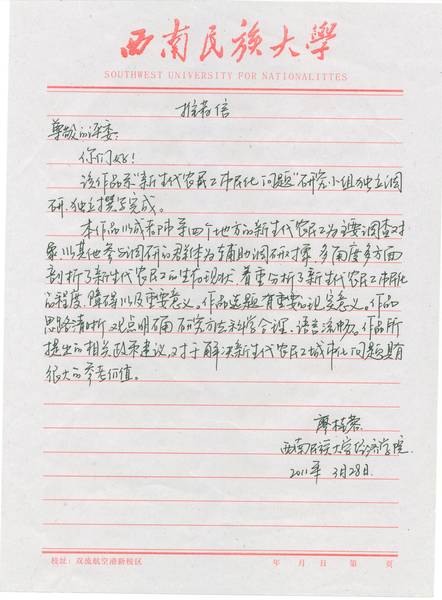 西南民族大学
SOUTHWEST UNIVERSITY FOR NATIONALITTES
推荐信
尊敬的评委:
你们好!
该作品系"新生代农民工市民化问题"研究小组独立调
研、独立撰写完成。
本作品以成都市等四个地方的新生代农民工为主要调查对
象,以其他参与调研的群体为辅助调研对象,多角度多方面
剖析了新生代农民工的生存现状,着重分析了新生代农民工市民化
的程度、障碍以及重要意义。作品选题有重要的现实意义。作品
思路清晰,观点明确,研究方法科学合理、语言流畅。作品所
提出的相关政策建议,对于解决新生代农民工城市化问题具有
很大的参考价值。
廖桂蓉
西南民族大学经济学院
2011年 3月28日.
校址:双流航空港新校区 年 月 日 第 页